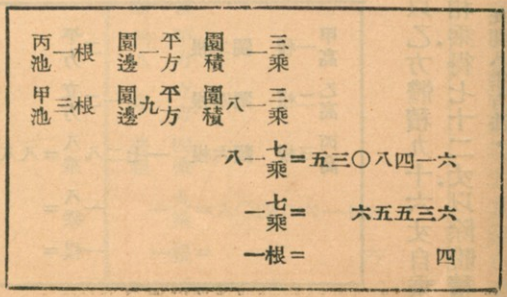 丙池一根　園邊一平方　園積一三乘
甲池三根　園邊九平方　園積八一三乘
八一七乘=五三〇八四一六
一七乘=六五五三六
一根=四